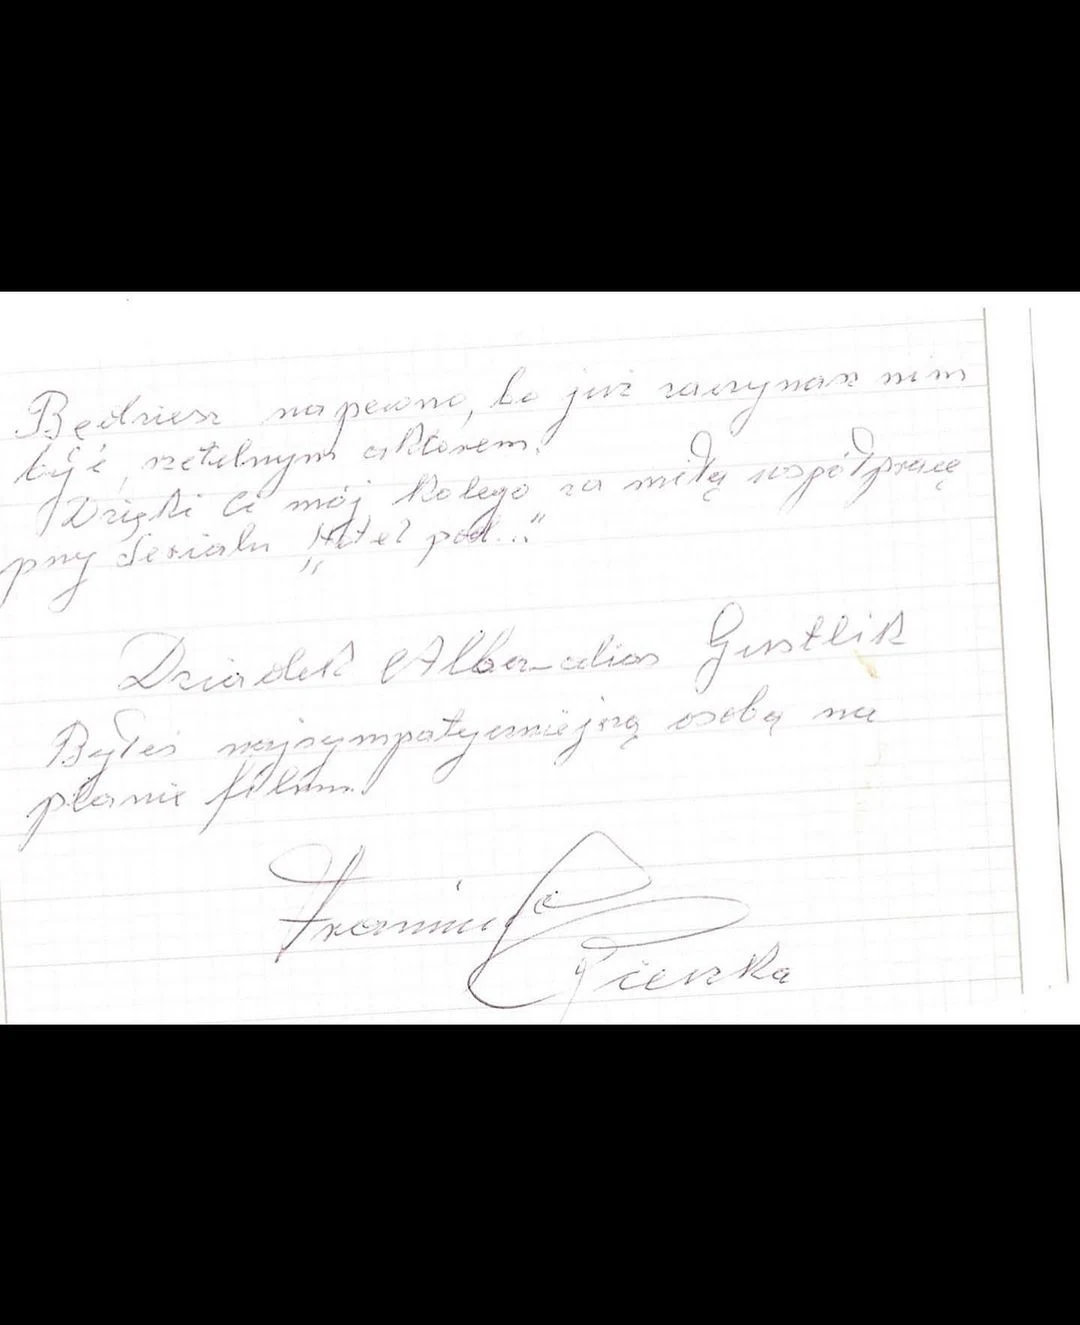 Będziesz napewno, bo już zaczynasz nim
być, rzetelnym aktorem.
Dzięki Ci mój kolego za miłą współpracę
przy serialu "Hotel pod..."
Dziadek Gustlik
Byłeś najsympatyczniejszą osobą na
planie filmu
Franciszek
Pieczka